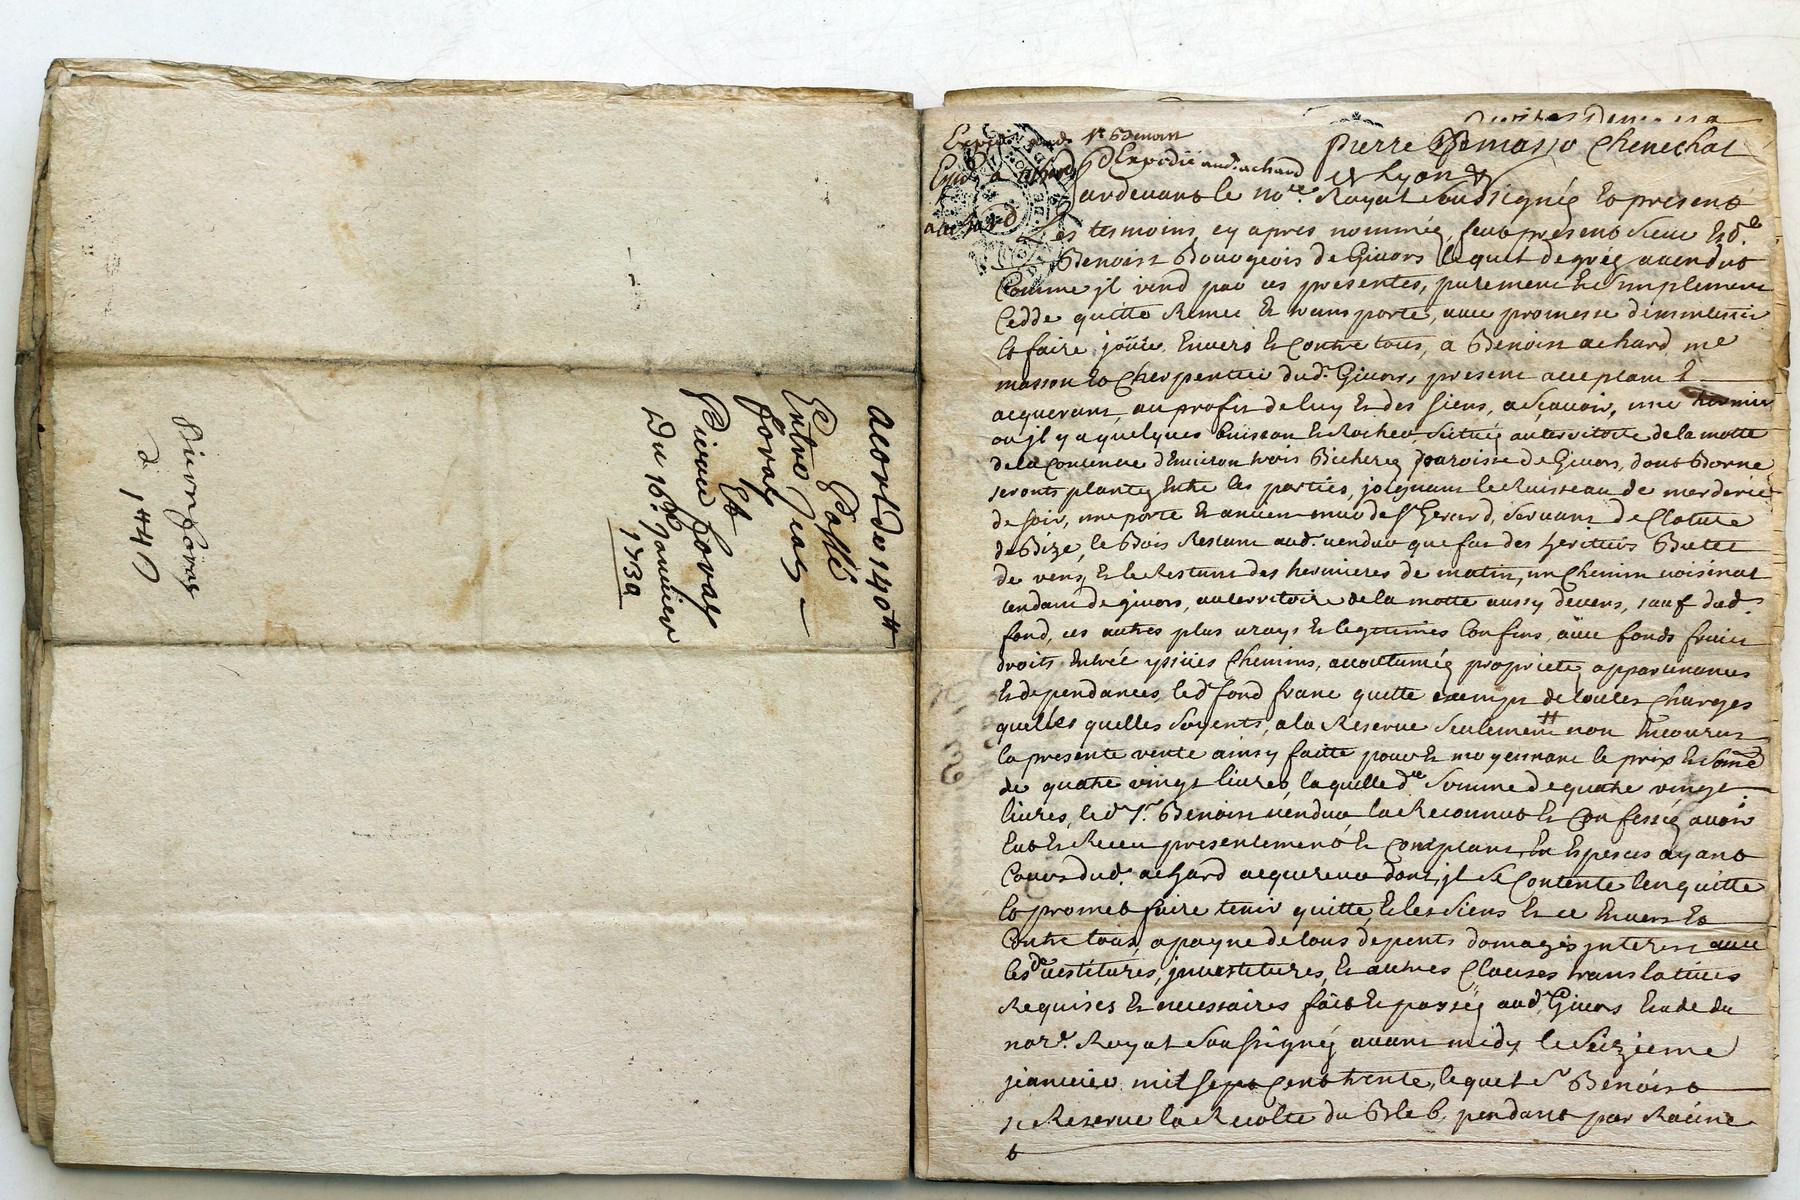 acord de 140 tt
Passé
Entre Jean
foray
Et
Pierre foray
Du 16e Janvier
1730
Pierre foray
a 144
Expedié aud. Sr Benoist
Expedié aud. achard
Pierre Chenechal
et Lyon &
Pardevant le nore Royal soussigné et present
Les tesmoins cy apres nommés, feut present sieur
Benoist Bourgeois de Givors lequel de gré a vendut
Comme jl vend par ces presentes, purement et simplement
Cedde quitte Remet Et transporte, avec promesse
et faire joüir Envers Et Contre tous, a Benoist achard me
masson et Cherpentier dud. Givors, present acceptant Et
acquerant, au profit de luy Et des siens, a sçavoir, une hermie
ou jl y a quelques buisson Et Rocher scitué au territoire de la motte
de la Contenue d'Environ trois Bicherés paroisse de Givors, dont Borne
seronts plantés Entre les parties, joignant le Ruisseau de merderie
de soir, une porte Et ancien mur de St Gerard, servant de Cloture
de Bize, le Bois Restant aud. vendeur que fut des heritiers
de vens, Et le Restant des hermieres de matin, un Chemin voisinal
tendant de givors, au territoire de la motte aussy de vens, sauf dud.
fond, ses autres plus vrays Et legitimes Confins, avec fonds fruits
droits Entrée yssües Chemins, accoutumés proprietés appartenances
Et dependances, led. fond franc quitte exempt de toutes Charges
quelles quelles soyents, a la Reserve seulement non Encourus
la presente vente ainsy faitte pour Et moyennant le prix Et somme
de quatre vingt livres, laquelle de somme de quatre vingt
livres, led. Sr. Benoist vendeur la Reconnut Et Confessé avoir
Eut Et Receu presentement Et Comptant En Especes ayant
Cours dud. achard acquereur dont jl se Contente l'en quitte
et promet faire tenir quitte, Et les siens Et ce Envers Et
Contre tous, a payne de tous depents domages jnterest avec
les d. vestitures, jnvestitures, Et autres Clauses translatives
Requises Et necessaires fait Et passé aud. Givors Etude du
nore. Royal soussigné avant midy le seizieme
janvier mil sept Cent trente, lequel Sr Benoist
se Reserve la Recolte du Bleb, pendant par Racine